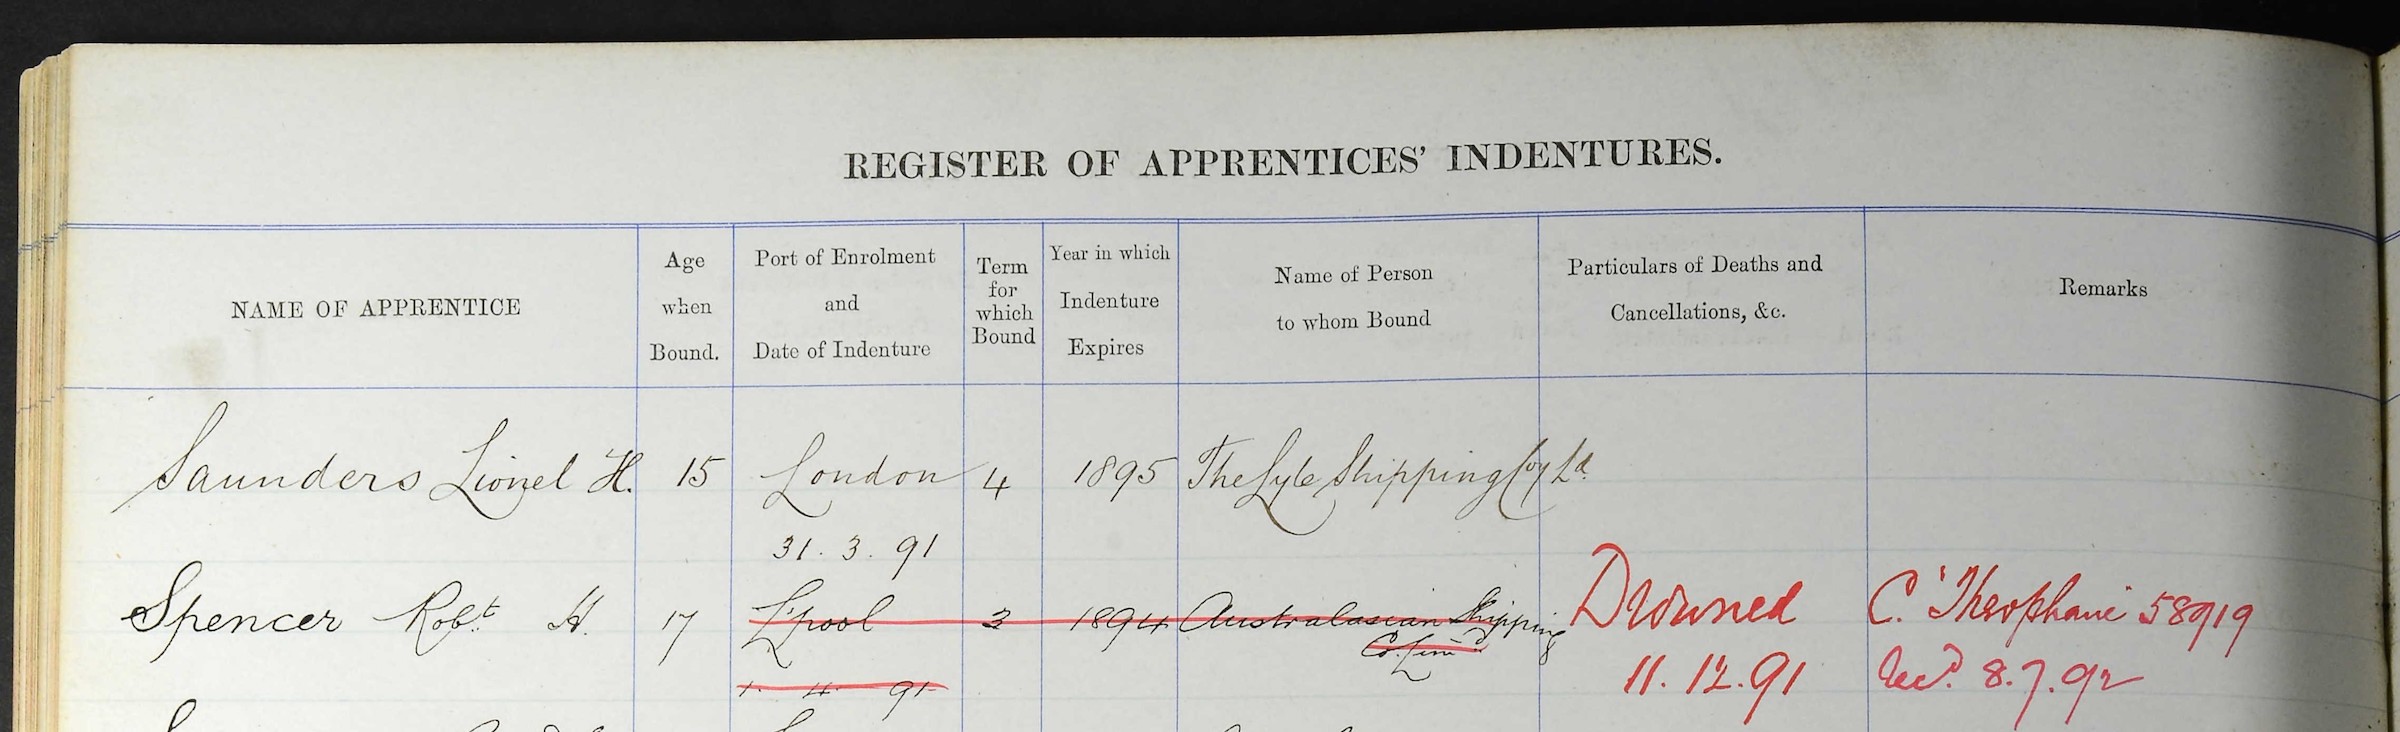 REGISTER OF APPRENTICES' INDENTURES.
NAME OF APPRENTICE
Age
when
Bound.
Port of Enrolment
and
Date of Indenture
Term
for
which
Bound
Year in which
Indenture
Expires
Name of Person
to whom Bound
Particulars of Deaths and
Cancellations, &c.
Remarks
Saunders Lionel H. 15 London 4 1895 The Lyle Shipping Coy Ld.
31. 3. 91
Spencer Robt. H. 17 L'pool 3 1894 Australasian Shipping Drowned C. 'Theophane' 58919
Co. Limd
1. 4. 91 11. 12. 91 Recd. 8. 7. 92